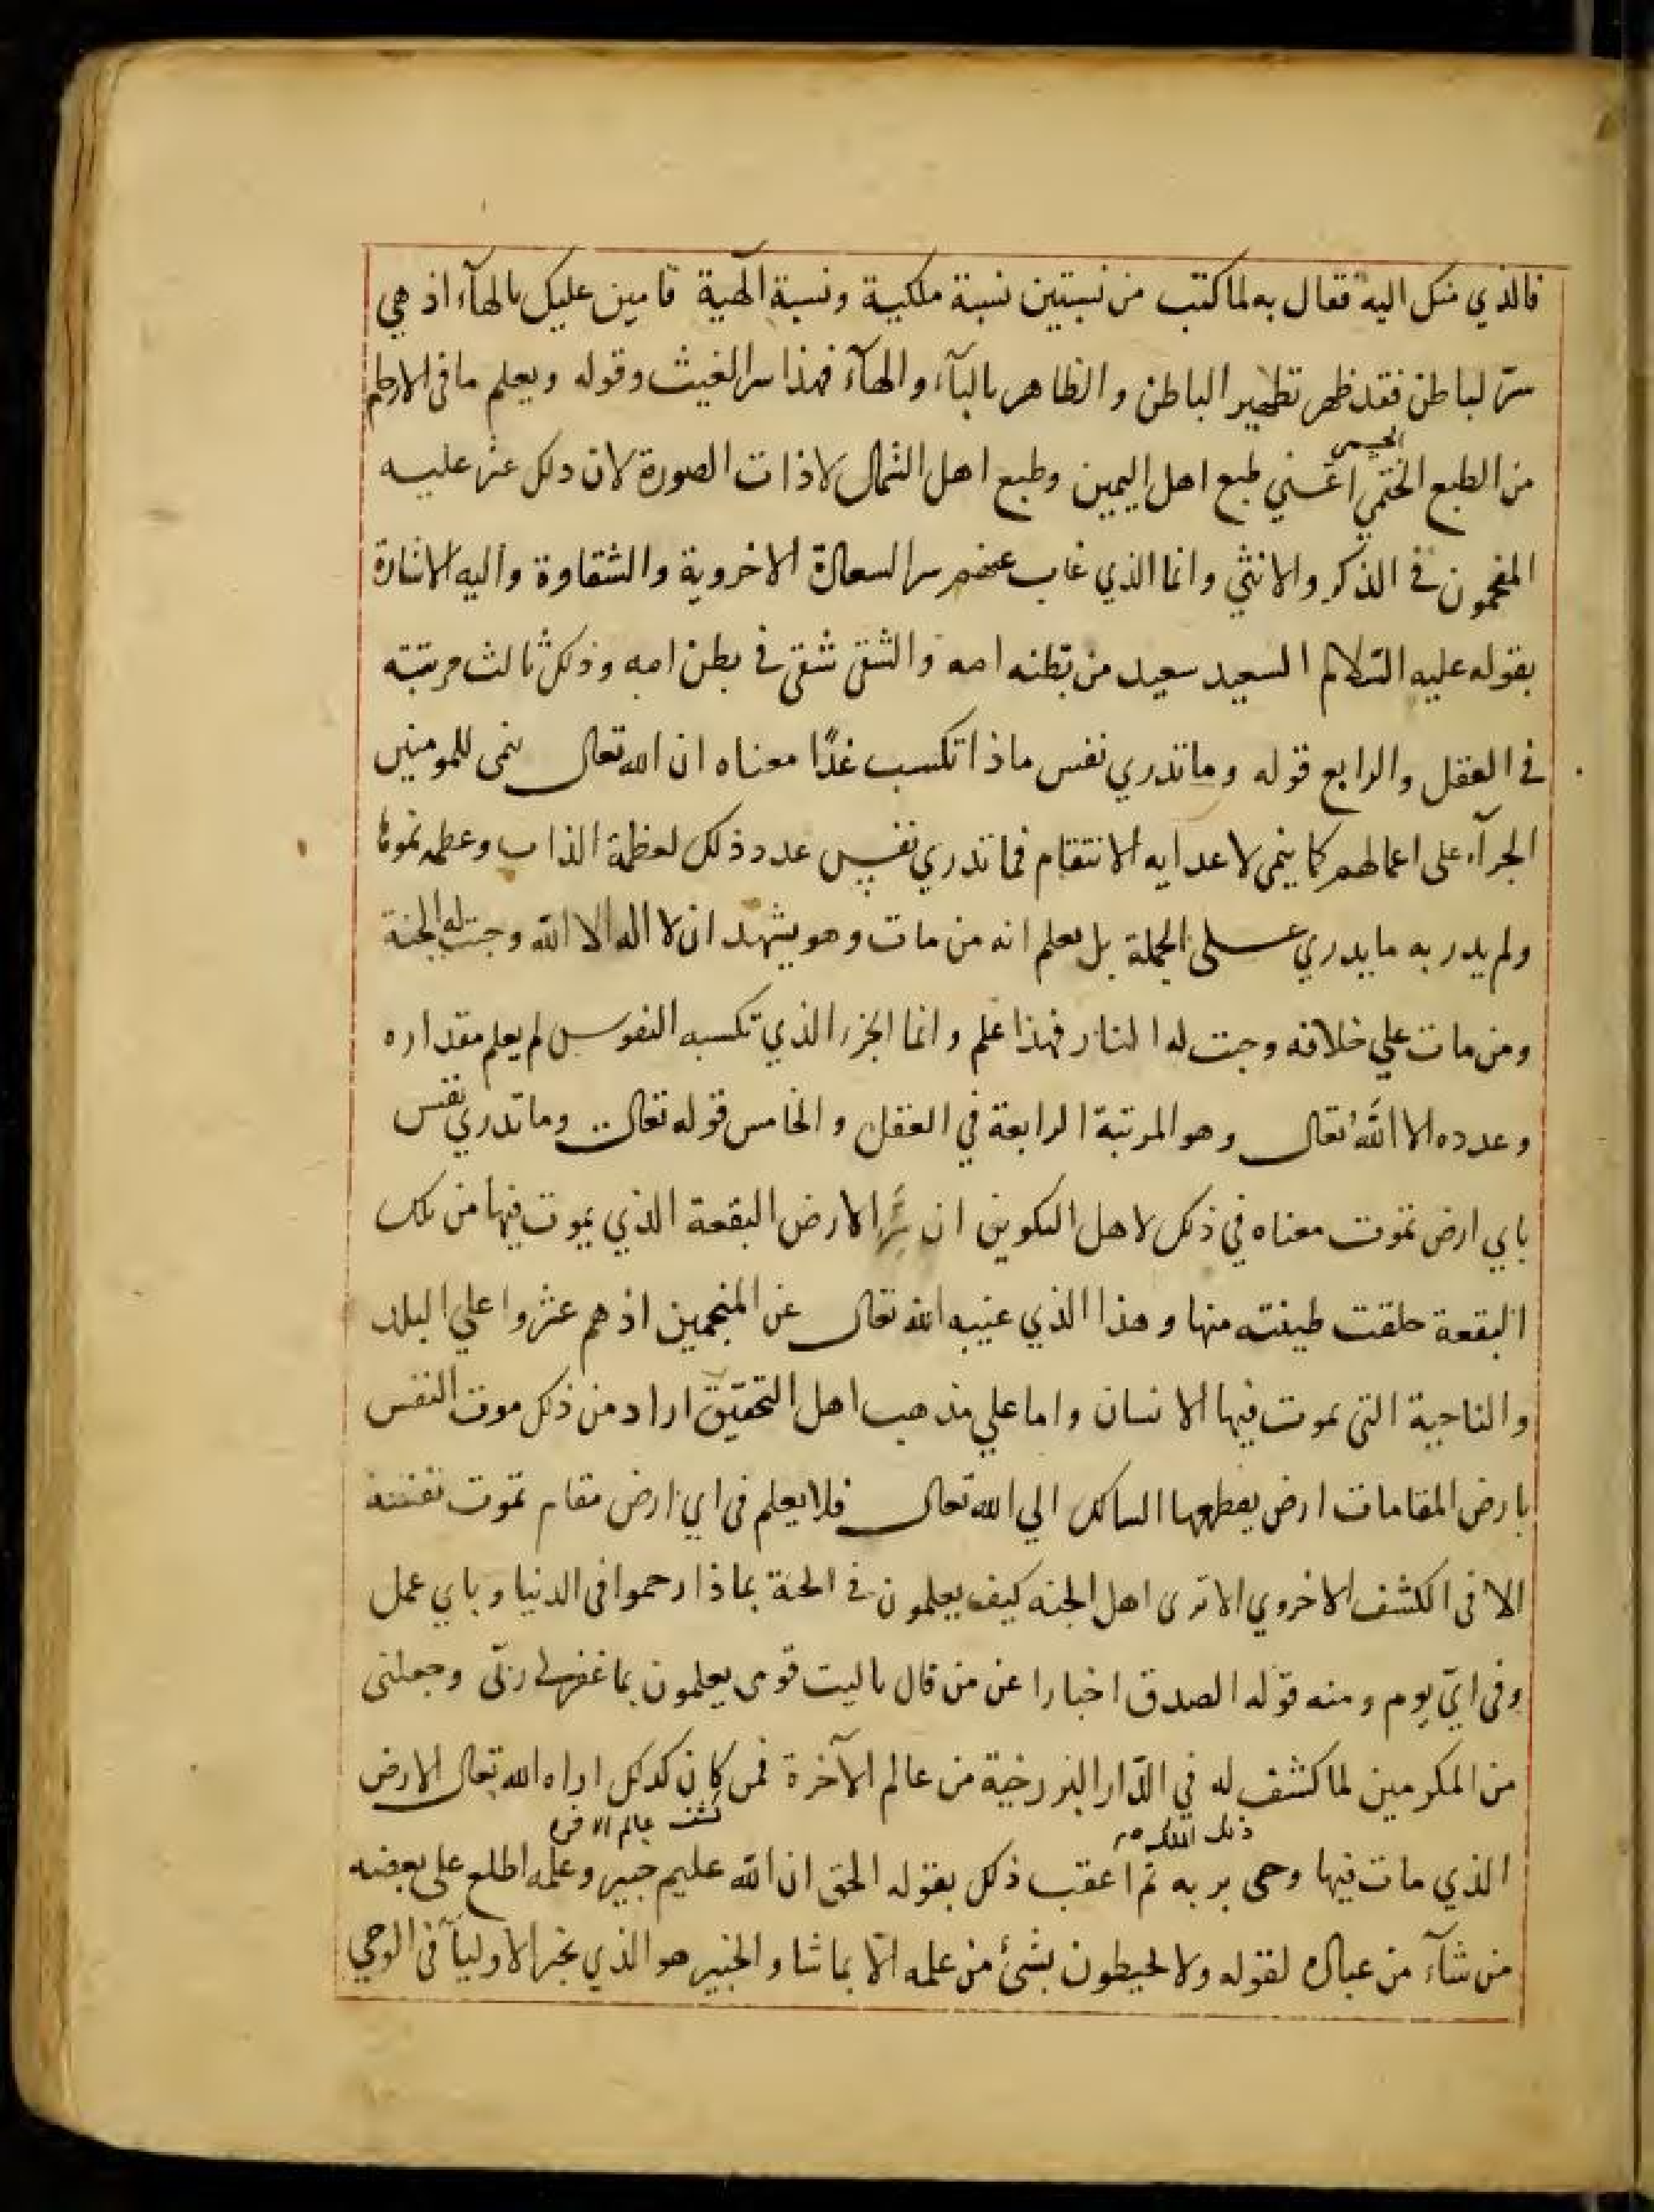 فالذي منك اليه فقال به لما كتب من نسبتين نسبة ملكية ونسبة الهية فامين عليك بالهآء اذ هي
سر لباطن فقد ظهر تطهير الباطن والظاهر بالبآء والهآء فهذا سر الغيث وقوله ويعلم ما في الارحام
من الطبع الختمي اعني طبع اهل اليمين وطبع اهل الشمال لا ذات الصورة لان ذلك عثر عليه
المنجمون في الذكر والانثي وانما الذي غاب عنهم سر السعادة الاخروية والشقاوة واليه الاشارة
بقوله عليه السلام السعيد سعيد من بطنه امه والشقى شقى في بطن امه وذلك ثالث مرتبته
في العقل والرابع قوله وما تدري نفس ماذا تكسب غدًا معناه ان الله تعالى ينمى للمومنين
الجرآء على اعمالهم كما ينمى لاعدايه الانتقام فما تدري نفس عدد ذلك لعظمة الذاب وعظمه
ولم يدر به ما يدري على الجملة بل يعلم انه من مات وهو يشهد ان لا اله الا الله وجبت له الجنة
ومن مات علي خلافه وجبت له النار فهذا علم وانما الجزر الذي تكسبه النفوس لم يعلم مقداره
وعدده الا الله تعالى وهو المرتبة الرابعة في العقل والخامس قوله تعالى وما تدري نفس
باي ارض تموت معناه في ذلك لاهل التكوين ان الارض البقعة الذي يموت فيها من تلك
البقعة خلقت طينته منها وهذا الذي غيبه الله تعالى عن المنجمين اذ هم عثروا علي البلد
والناحية التى يموت فيها الانسان واما علي مذهب اهل التحقيق اراد من ذلك موت النفس
بارض المقامات ارض يقطعها السالك الي الله تعالى فلا يعلم فى اي ارض مقام تموت نفسه
الا فى الكشف الاخروي الا ترى اهل الجنه كيف يعلمون في الجنة بماذا رحموا فى الدنيا وباي عمل
وفى ايّ يوم ومنه قوله الصدق اخبارا عن من قال ياليت قومى يعلمون بما غفر لي ربّى وجعلنى
من المكرمين لما كشف له في الدّار البزرخية من عالم الآخرة فمن كان كذلك اراه الله تعالى الارض
كشف عالم الاخرة
الذي مات فيها وحى بربه ثم اعقب ذلك بقوله الحق ان الله عليم خبير وعلمه اطلع على بعضه
من شآء من عباده لقوله ولا يحيطون بشئ من علمه الّا بما شا والخبير هو الذي يخبر الاوليآ فى الوحي